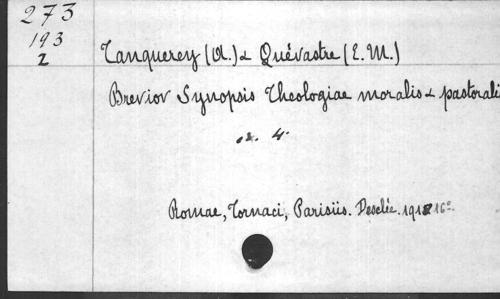 273
193
2
Tanquerey (A.) & Quévastre (E.M.)
Brevior Synopsis Theologiae moralis & pastorali
4.
Romae, Tornaci, Parisiis. Desclée. 16º.